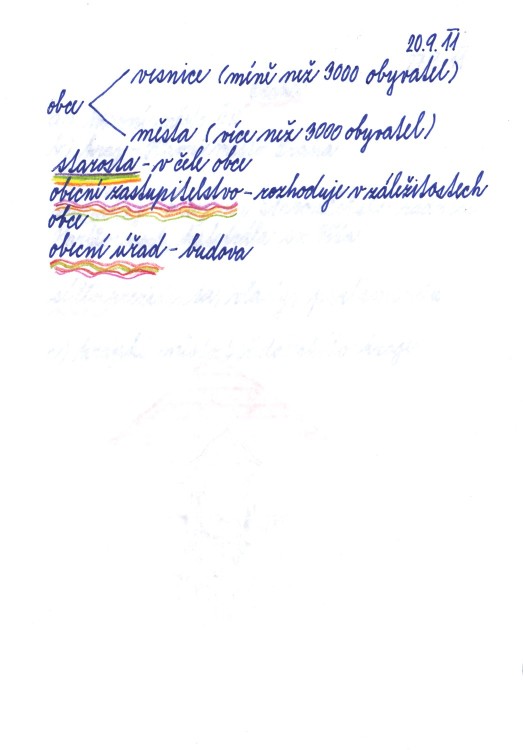 20.9. 11
vesnice (míně než 3000 obyvatel)
obce
města (více než 3000 obyvatel)
starosta - v čele obce
obecní zastupitelstvo - rozhoduje v záležitostech
obce
obecní úřad - budova